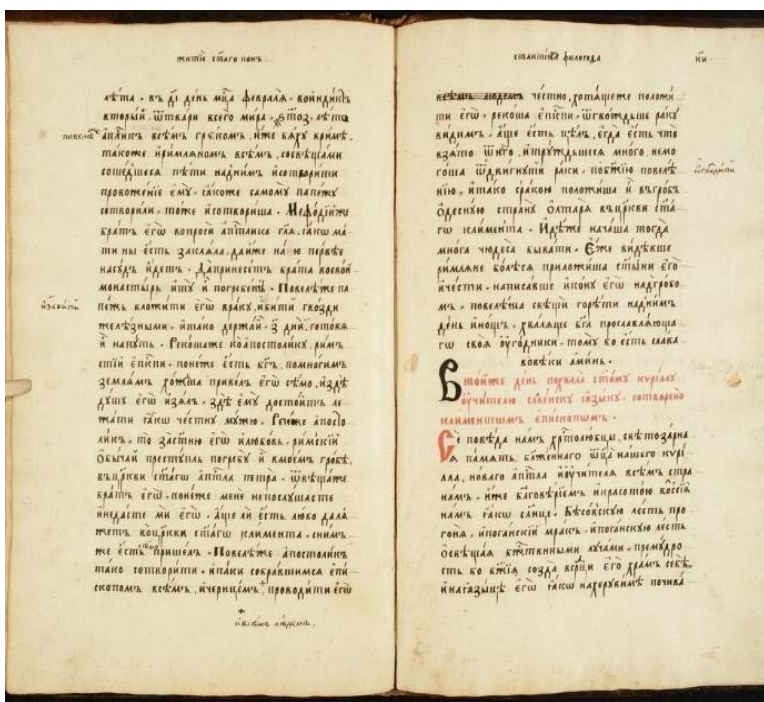 житїе ст҃аго кон
лѣта · въ д҃і день мц҃а февралѧ · воиндиктъ
вторый · ѿтвари всего мира ·
повелѣ
апⷭ҇ликъ всѣмъ грекомъ, иже бѧхꙋ
такоже иримлѧномъ всѣмъ, сосвѣщами
сошедшесѧ пѣти надъ нимъ исотворити
провоженїе емꙋ · ꙗкоже самомꙋ папежꙋ
сотворили · тоже исотвориша · Меѳодїйже
братъ егѡ вопроси апⷭ҇лика гл҃ѧ, ꙗкѡ ма
ти ны есть заклѧла, дайже на ю первѣе
насꙋдъ идетъ · Дапринесетъ брата восвой
монастырь и погребетъ · Повелѣже па
пежъ вложити егѡ враку, ибити гвозди
желѣзными · итако держай · з҃ дний, готовѧ
и напꙋть · Рекошаже коапостоликꙋ, рим
стїи епⷭ҇кпи · понеже есть бг҃ъ, помногимъ
землѧмъ хожша привелъ егѡ сѣмо, издѣ
дꙋшꙋ егѡ изѧлъ · здѣ емꙋ достоитъ ле
жати ꙗкѡ честнꙋ мꙋжꙋ · Речеже апосто
ликъ, то застн҃ю егѡ илюбовь · римскїи
обычай престꙋплъ погребꙋ и вмоемъ гробѣ,
въцр҃кви ст҃агѡ апⷭ҇тла петра · ѿвѣщаже
братъ егѡ · понеже мене непослꙋшасте
инедасте ми егѡ · аще ли есть любо далѧ
жетъ воцр҃кви ст҃агѡ климента · снимъ
же есть пришелъ · Повелѣже апостоликъ
тако сотворити · ипаки собравшимсѧ епи
скопомъ всѣмъ, ичернцемъ, проводити егѡ
ивсѣмъ людемъ,
стантїна философа
к҃и
всѣмъ людемъ честно, хотѧщеже положи
ти егѡ · рекоша епⷭ҇кпи · ѿгвождьше ракꙋ
видимъ · аще есть цѣлъ, егда есть что
взѧто ѿнего, итрꙋждьшесѧ много, немо
гоша ѿдвигнꙋти раки · побж҃їю повелѣ
нїю, итако сракою положиша и въгробъ
ѡдеснꙋю странꙋ олтарѧ въцр҃кви ст҃а
гѡ климента · Идѣже начаша тогда
многа чюдеса бывати · Еже видѣвше
римлѧне болѣсѧ приложиша ст҃ыни его
ичести · написавше иконꙋ егѡ надгробо
мъ · повелѣша свѣщи горѣти надъ нимъ
день инощь · хвалѧще бг҃а прославлѧюща
гѡ своѧ оугодники · томꙋ бо есть слава
вовѣки аминь ·
Втойже день похвала ст҃омꙋ кѵрїлꙋ
оучителю слꙋвенскꙋ ꙗзыкꙋ · сотворено
климентомъ епископомъ ·
Се повѣда намъ хрⷭ҇толюбцы, свѣтозарна
ѧ памѧть бл҃женнаго ѿц҃а нашего кѵрі
лла, новаго апⷭ҇тла иоучителѧ всѣмъ стра
намъ · иже благовѣрїемъ икрасотою восїѧ
намъ ꙗкѡ слн҃це · Бѣсовскꙋю лесть про
гонѧ, ипоганскїй мракъ · ипоганскꙋю лесть
освѣщаѧ бжⷭ҇твеными лꙋчами · премꙋдро
сть бо бж҃їѧ, созда всрⷣци его храмъ себѣ,
инаꙗзыцѣ егѡ ꙗкѡ нахерꙋвимѣ почива